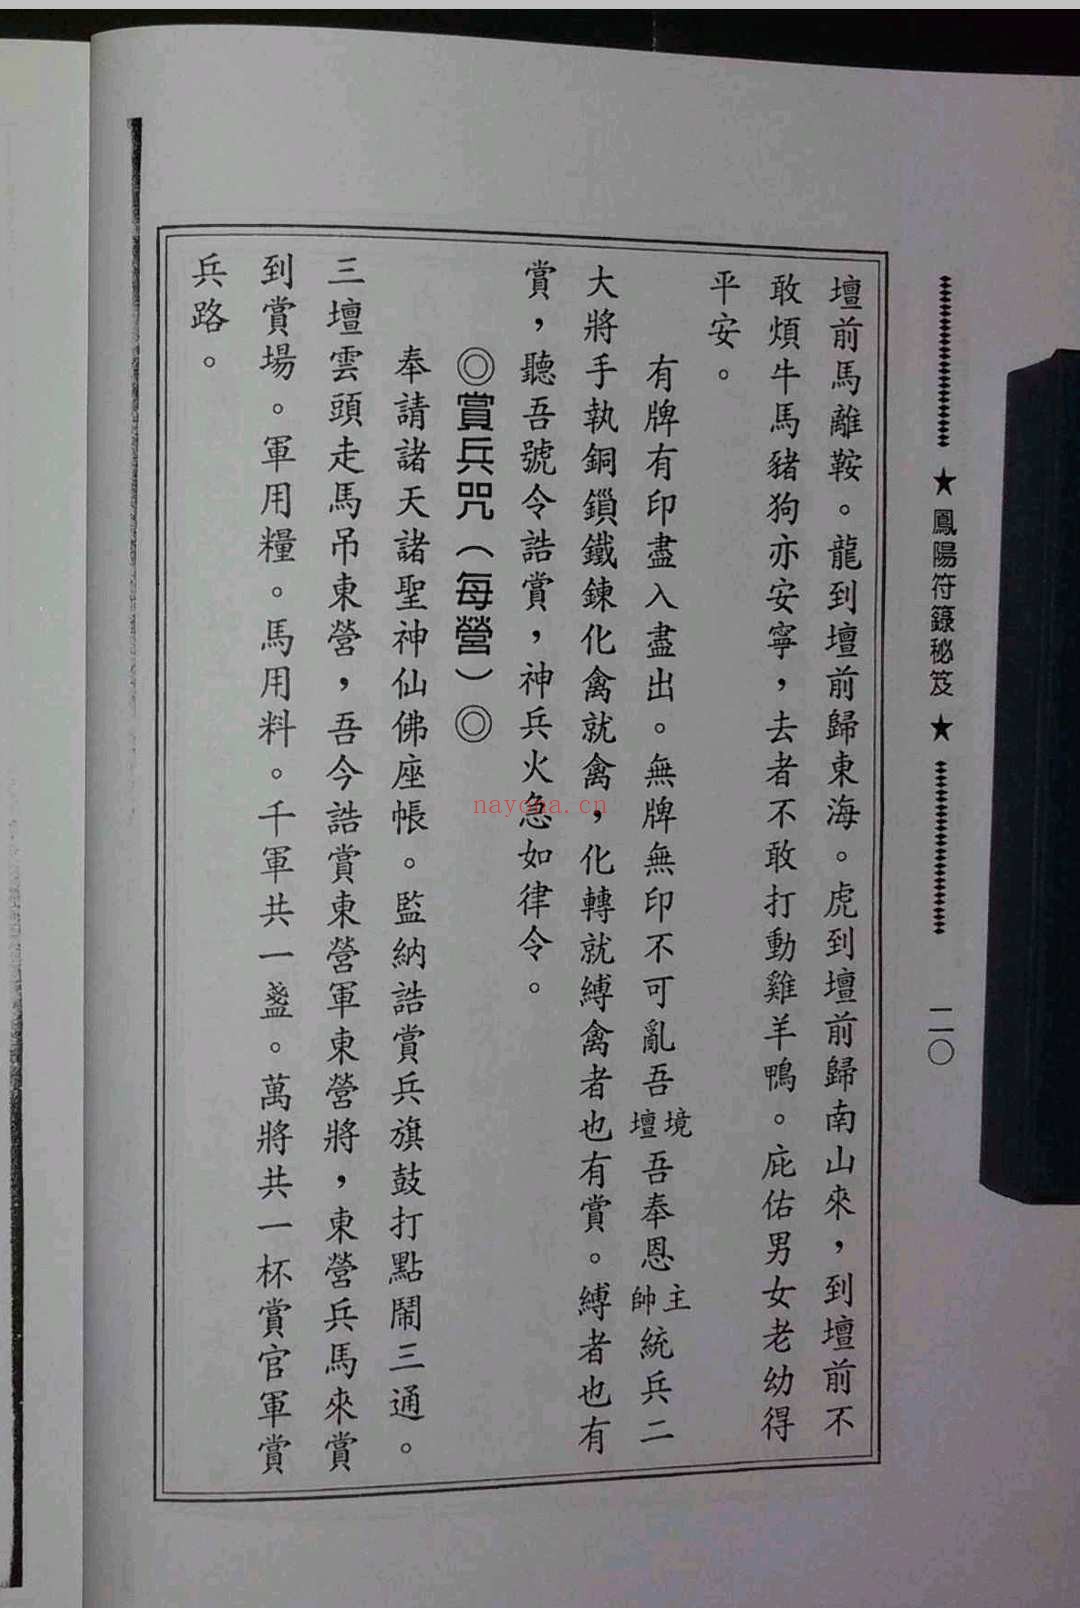 ★鳳陽符籙秘笈★
二〇
壇前馬離鞍。龍到壇前歸東海。虎到壇前歸南山來，到壇前不
敢煩牛馬豬狗亦安寧，去者不敢打動雞羊鴨。庇佑男女老幼得
平安。
有牌有印盡入盡出。無牌無印不可亂吾境壇吾奉恩主帥統兵二
大將手執銅鎖鐵鍊化禽就禽，化轉就縛禽者也有賞。縛者也有
賞，聽吾號令誥賞，神兵火急如律令。
◎賞兵咒（每營）◎
奉請諸天諸聖神仙佛座帳。監納誥賞兵旗鼓打點鬧三通。
三壇雲頭走馬吊東營，吾今誥賞東營軍東營將，東營兵馬來賞
到賞場。軍用糧。馬用料。千軍共一盞。萬將共一杯賞官軍賞
兵路。
nayona.cn